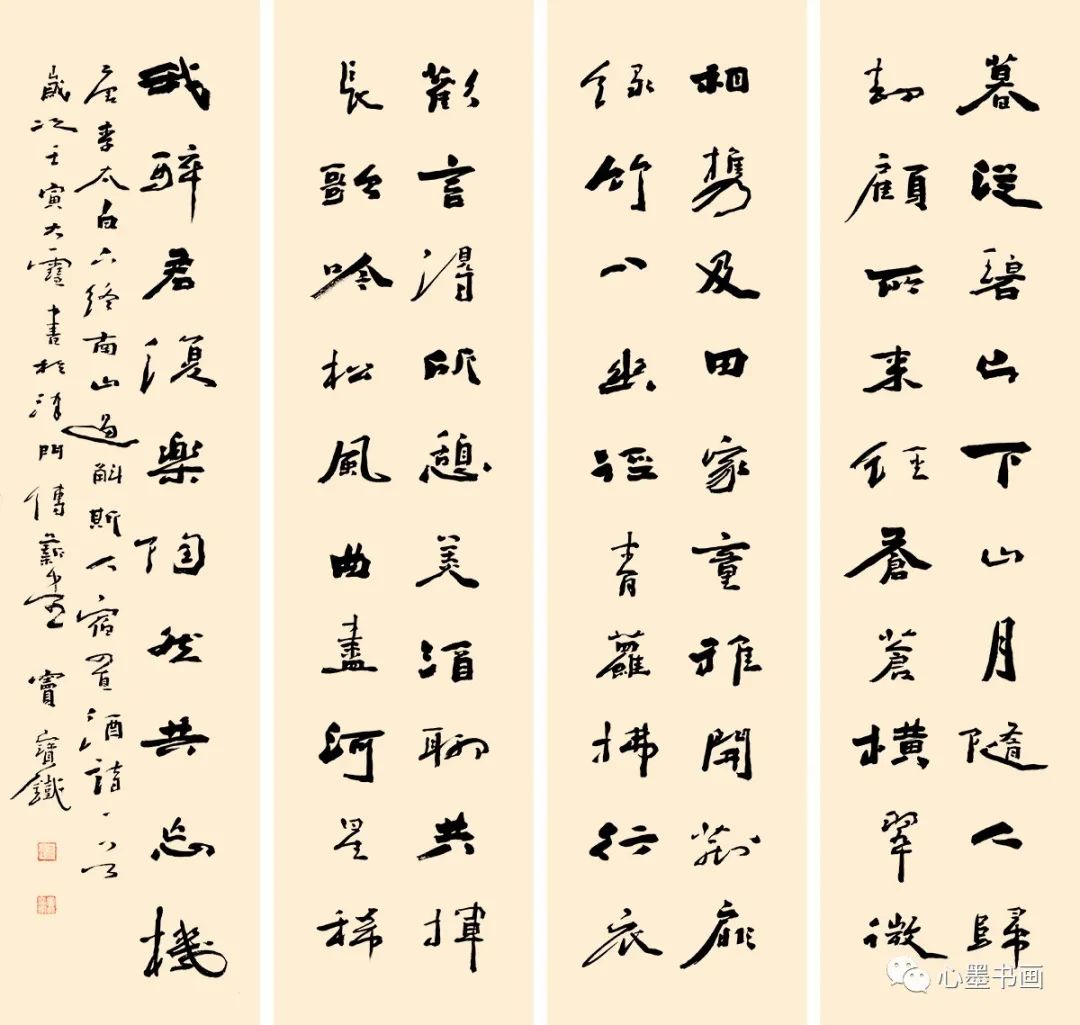 暮從碧山下山月隨人歸
却顧所来徑蒼蒼橫翠微
相携及田家童稚開荊扉
綠竹入幽徑青蘿拂行衣
歡言得所憩美酒聊共揮
長歌吟松風曲盡河星稀
我醉君復樂陶然共忘機
唐李太白下終南山過斛斯人宿置酒詩一首
歲次壬寅大書於津門傳薪 竇寶鐵
心墨书画